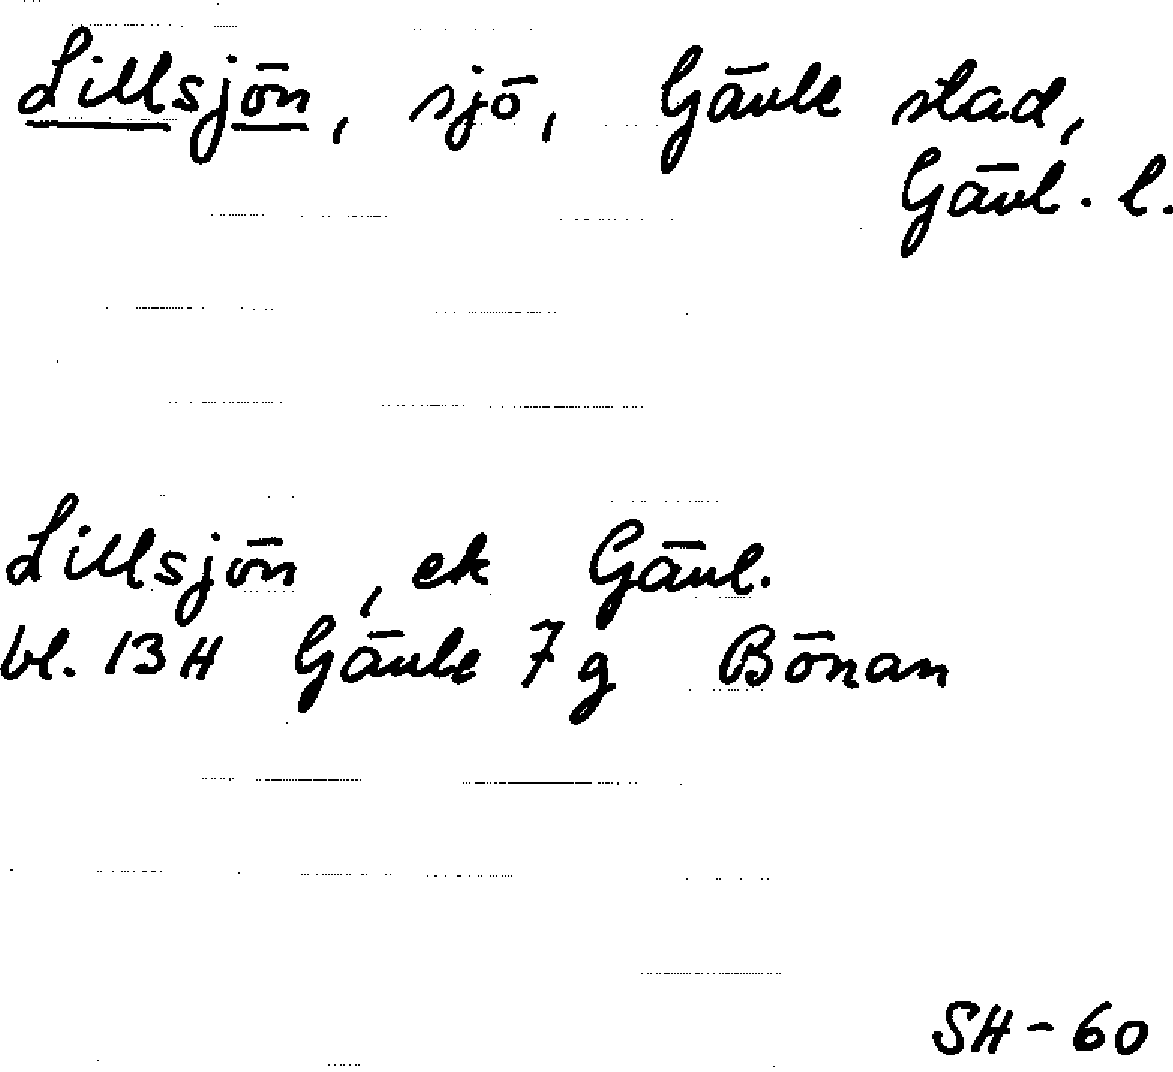 Lillsjön, sjö, Gävle stad,
Gävl. l.
Lillsjön, ek Gävl.
bl. 13H Gävle 7g Bönan
SH-60